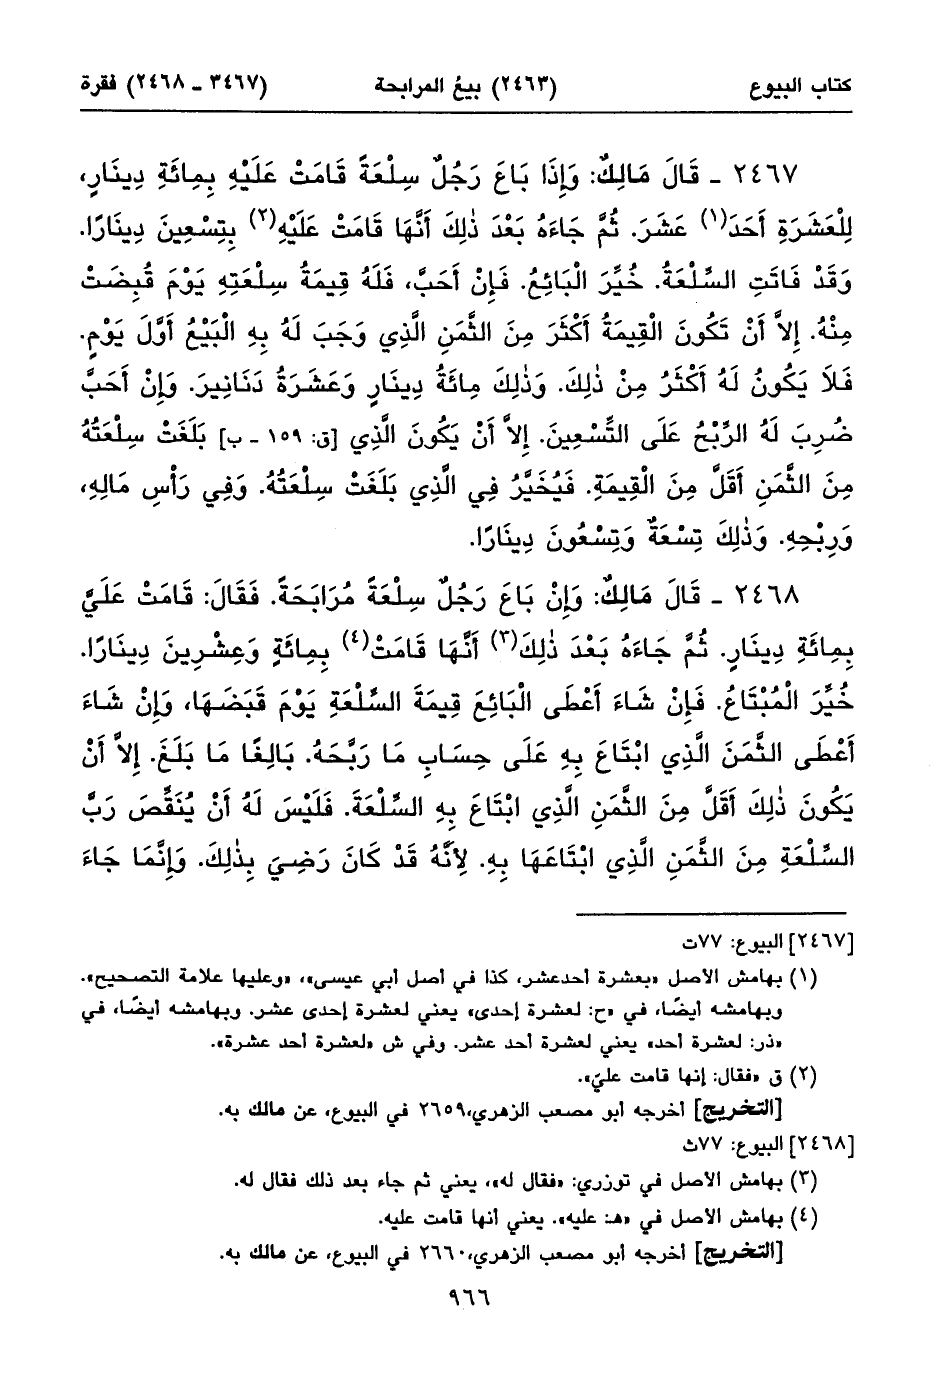 كتاب البيوع (٢٤٦٣) بيعُ المرابحة (٣٤٦٧ ـ ٢٤٦٨) فقرة
٢٤٦٧ ـ قَالَ مَالِكٌ: وَإِذَا بَاعَ رَجُلٌ سِلْعَةً قَامَتْ عَلَيْهِ بِمِائَةِ دِينَارٍ،
لِلْعَشَرَةِ أَحَدَ(١) عَشَرَ. ثُمَّ جَاءَهُ بَعْدَ ذٰلِكَ أَنَّهَا قَامَتْ عَلَيْهِ(٢) بِتِسْعِينَ دِينَارًا.
وَقَدْ فَاتَتِ السِّلْعَةُ. خُيِّرَ الْبَائِعُ. فَإِنْ أَحَبَّ، فَلَهُ قِيمَةُ سِلْعَتِهِ يَوْمَ قُبِضَتْ
مِنْهُ. إِلاَّ أَنْ تَكُونَ الْقِيمَةُ أَكْثَرَ مِنَ الثَّمَنِ الَّذِي وَجَبَ لَهُ بِهِ الْبَيْعُ أَوَّلَ يَوْمٍ.
فَلاَ يَكُونُ لَهُ أَكْثَرُ مِنْ ذٰلِكَ. وَذٰلِكَ مِائَةُ دِينَارٍ وَعَشَرَةُ دَنَانِيرَ. وَإِنْ أَحَبَّ
ضُرِبَ لَهُ الرِّبْحُ عَلَى التِّسْعِينَ. إِلاَّ أَنْ يَكُونَ الَّذِي [ق: ١٥٩ ـ ب] بَلَغَتْ سِلْعَتُهُ
مِنَ الثَّمَنِ أَقَلَّ مِنَ الْقِيمَةِ. فَيُخَيَّرُ فِي الَّذِي بَلَغَتْ سِلْعَتُهُ. وَفِي رَأْسِ مَالِهِ،
وَرِبْحِهِ. وَذٰلِكَ تِسْعَةٌ وَتِسْعُونَ دِينَارًا.
٢٤٦٨ ـ قَالَ مَالِكٌ: وَإِنْ بَاعَ رَجُلٌ سِلْعَةً مُرَابَحَةً. فَقَالَ: قَامَتْ عَلَيَّ
بِمِائَةِ دِينَارٍ. ثُمَّ جَاءَهُ بَعْدَ ذٰلِكَ(٣) أَنَّهَا قَامَتْ(٤) بِمِائَةٍ وَعِشْرِينَ دِينَارًا.
خُيِّرَ الْمُبْتَاعُ. فَإِنْ شَاءَ أَعْطَى الْبَائِعَ قِيمَةَ السِّلْعَةِ يَوْمَ قَبَضَهَا، وَإِنْ شَاءَ
أَعْطَى الثَّمَنَ الَّذِي ابْتَاعَ بِهِ عَلَى حِسَابِ مَا رَبَّحَهُ. بَالِغًا مَا بَلَغَ. إِلاَّ أَنْ
يَكُونَ ذٰلِكَ أَقَلَّ مِنَ الثَّمَنِ الَّذِي ابْتَاعَ بِهِ السِّلْعَةَ. فَلَيْسَ لَهُ أَنْ يُنَقِّصَ رَبَّ
السِّلْعَةِ مِنَ الثَّمَنِ الَّذِي ابْتَاعَهَا بِهِ. لِأَنَّهُ قَدْ كَانَ رَضِيَ بِذٰلِكَ. وَإِنَّمَا جَاءَ
[٢٤٦٧] البيوع: ٧٧ت
(١) بهامش الأصل «بعشرة أحدعشر، كذا في أصل أبي عيسى»، «وعليها علامة التصحيح».
وبهامشه أيضًا، في «ح: لعشرة إحدى» يعني لعشرة إحدى عشر. وبهامشه أيضًا، في
«ذر: لعشرة أحد» يعني لعشرة أحد عشر. وفي ش «لعشرة أحد عشرة».
(٢) ق «فقال: إنها قامت عليّ».
[التخريج] أخرجه أبو مصعب الزهري،٢٦٥٩ في البيوع، عن مالك به.
[٢٤٦٨] البيوع: ٧٧ث
(٣) بهامش الأصل في توزري: «فقال له»، يعني ثم جاء بعد ذلك فقال له.
(٤) بهامش الأصل في «هـ: عليه». يعني أنها قامت عليه.
[التخريج] أخرجه أبو مصعب الزهري،٢٦٦٠ في البيوع، عن مالك به.
٩٦٦